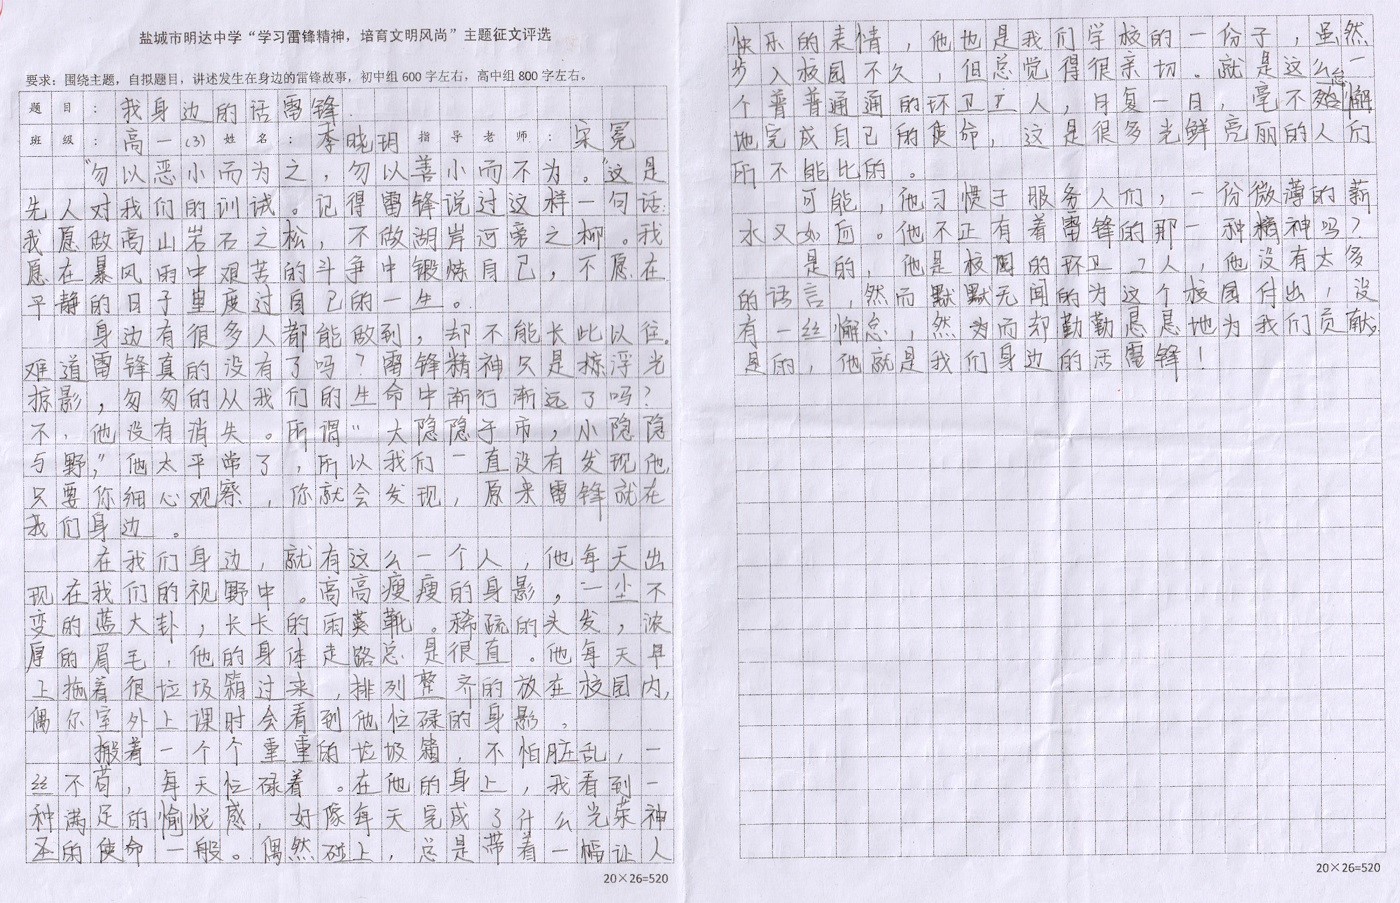 盐城市明达中学“学习雷锋精神，培育文明风尚”主题征文评选
要求：围绕主题，自拟题目，讲述发生在身边的雷锋故事，初中组 600 字左右，高中组 800 字左右。
题目：我身边的活雷锋
班级：高一(3)姓名：李晓玥指导老师：宋冕
“勿以恶小而为之，勿以善小而不为。”这是
先人对我们的训诫。记得雷锋说过这样一句话：
我愿做高山岩石之松，不做湖岸河旁之柳。我
愿在暴风雨中艰苦的斗争中锻炼自己，不愿在
平静的日子里度过自己的一生。
身边有很多人都能做到，却不能长此以往。
难道雷锋真的没有了吗？雷锋精神只是掠浮光
掠影，匆匆的从我们的生命中渐行渐远了吗？
不，他没有消失。所谓“大隐隐于市，小隐隐
与野，”他太平常了，所以我们一直没有发现他
只要你细心观察，你就会发现，原来雷锋就在
我们身边。
在我们身边，就有这么一个人，他每天出
现在我们的视野中。高高瘦瘦的身影，一尘不
变的蓝大卦，长长的雨靴。稀疏的头发，浓
厚的眉毛，他的身体走路总是很直。他每天早
上拖着很垃圾箱过来，排列整齐的放在校园内，
偶尔室外上课时会看到他忙碌的身影，
搬着一个个重重的垃圾箱，不怕脏乱，一
丝不苟，每天忙碌着。在他的身上，我看到一
种满足的愉悦感，好像每天完成了什么光荣神
圣的使命一般。偶然碰上，总是带着一幅让人
20×26=520
快乐的表情，他也是我们学校的一份子，虽然
步入校园不久，但总觉得很亲切。就是这么一
个普普通通的环卫工人，日复一日，毫不怠懈
地完成自己的使命，这是很多光鲜亮丽的人们
所不能比的。
可能，他习惯于服务人们，一份微薄的薪
水又如何。他不正有着雷锋的那一种精神吗？
是的，他是校园的环卫工人，他没有太多
的语言，然而默默无闻的为这个校园付出，没
有一丝懈怠，然而却勤勤恳恳地为我们贡献。
是的，他就是我们身边的活雷锋！
20×26=520